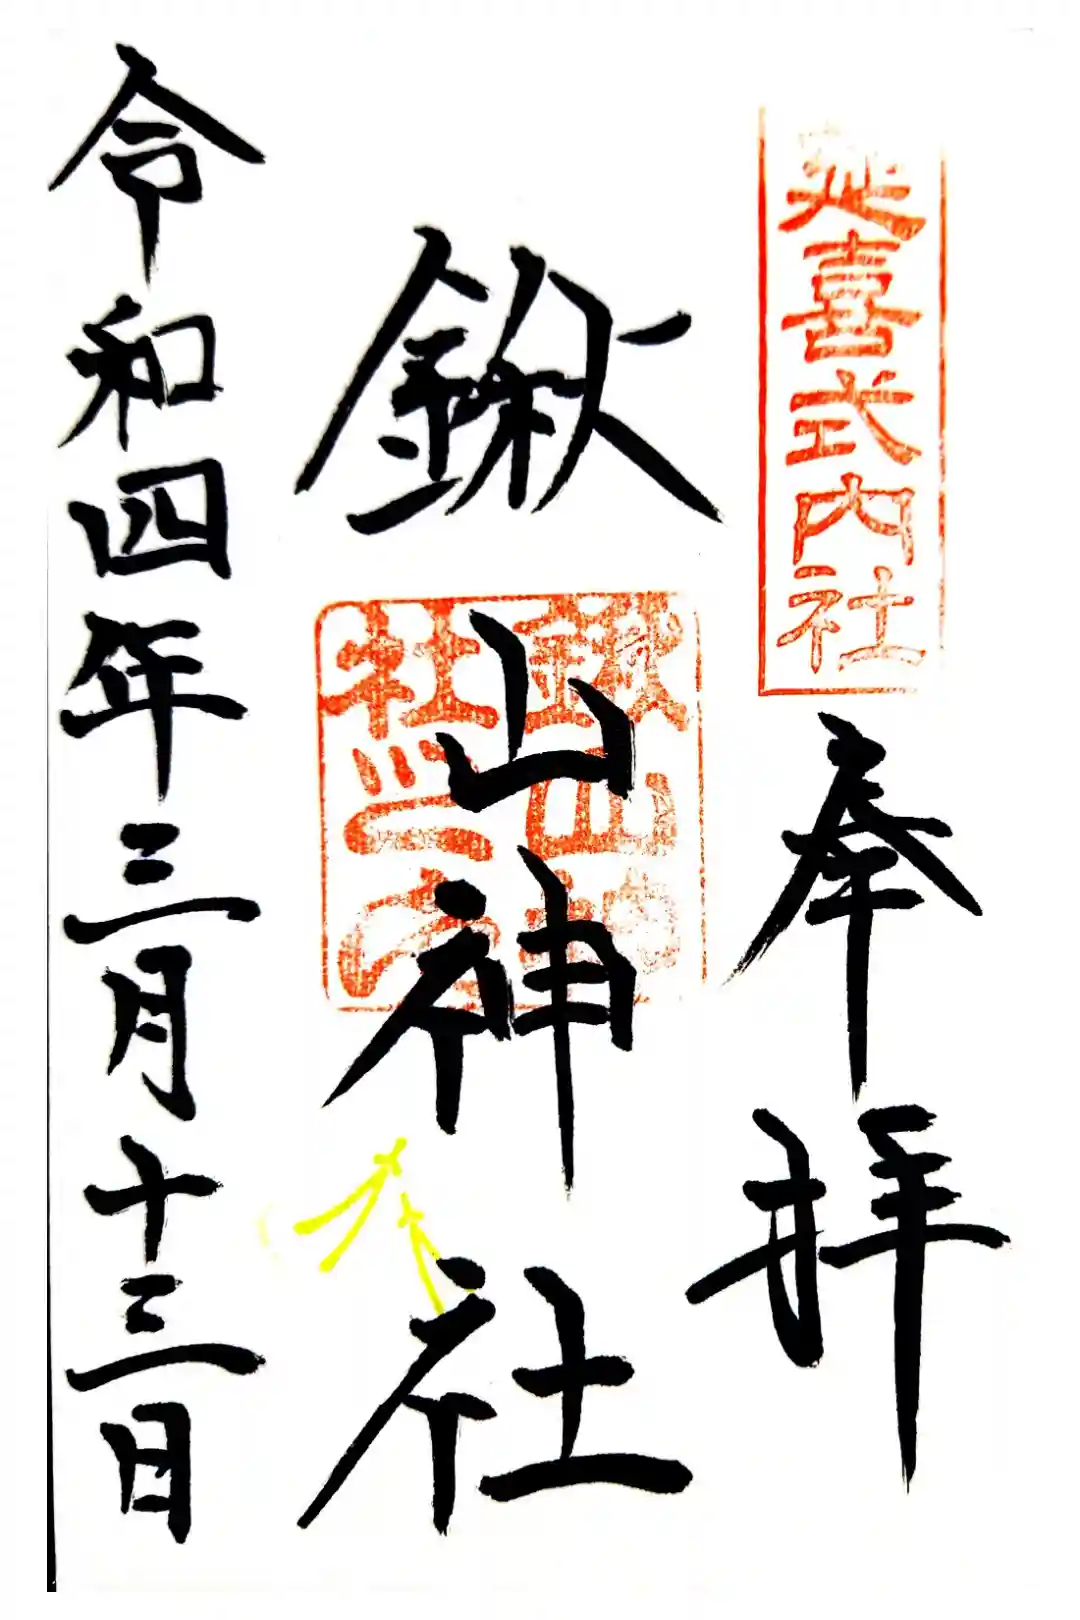 延喜式内社
奉拝
鍬山神社
令和四年三月十三日